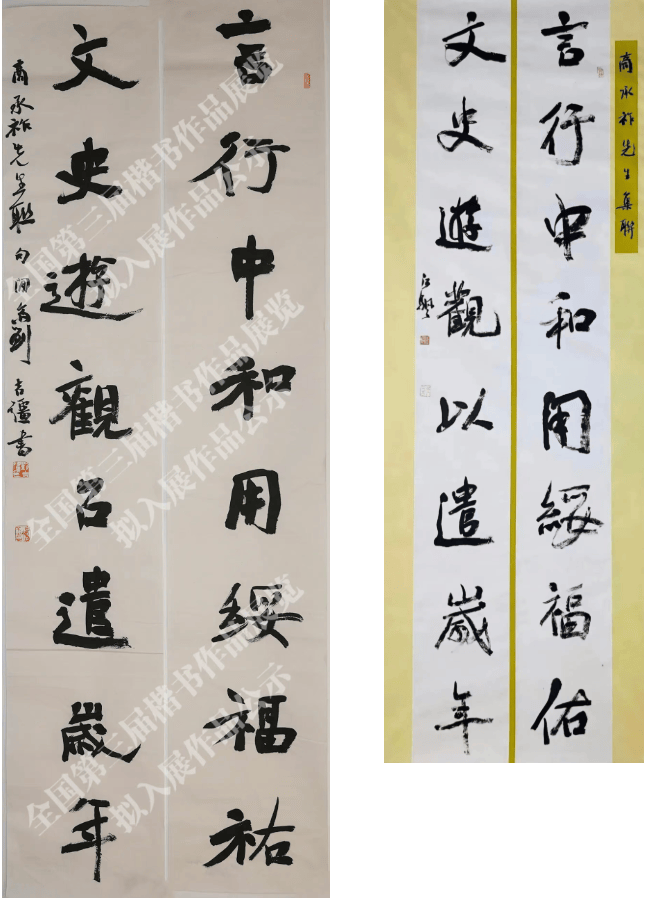 言行中和用綏福祐
文史遊觀㠯遣歲年
商承祚先生聯句
書
全国第三届楷书作品展览
拟入展作品公示
全国第三届楷书作品展览
拟入展作品公示
全国第三届楷书作品展览
拟入展作品公示
商承祚先生集聯
言行中和用綏福佑
文史遊觀以遣歲年